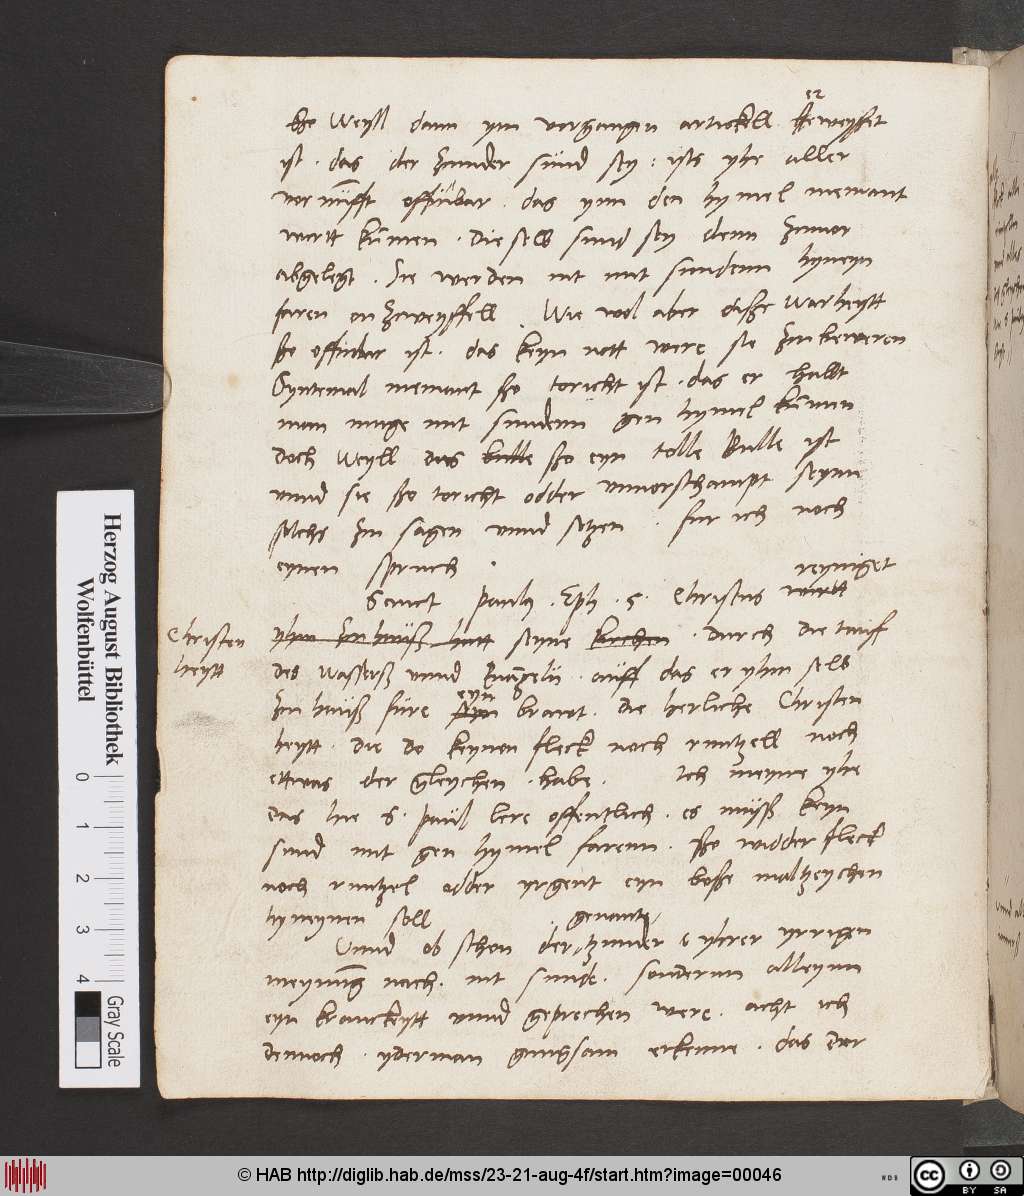 er
sso Weyll dann ym vorgangen artickell beweysset
ist . das der Zunder sund sey : ists yhe aller
vernunfft offinbar . das ynn den hymel niemant
wirtt kummen . die selb sund sey denn zuuor
abgelegt . Sie werden nit mit sundenn hyneyn
faren on zweyffell . Wie wol aber disse warheytt
sso offinbar ist . das keyn nott were sie zu beweren
Syntemal niemant sso toricht ist . das er hallt
man muge mit sundenn gen hymel kummen
doch weyll das bulle sso eyn tolle Bulle ist
vnnd sie sso toricht odder vnuorschampt seynn
solchs zu sagen vnnd setzen . fur ich noch
eynen spruch .
reyniget
Sanct Pauls . Eph . 5 . Christus wirtt
Christen
heytt
yhm zu hauss hatt seyne kirchen . durch die tauf
des wasserss vnnd Euangelii . auff das er yhm selb
eyn
zu hauss füre eyn brawt . die herliche Christen
heytt . die do keynen fleck noch runtzell noch
ettwas der gleychen . habe . Ich meyne yhe
das hie S . Paul lere offentlich . es muss keyn
sund mit gen hymel farenn . sso widder fleck
noch runtzel odder yrgent eyn bosse maltzeychen
hyneynen soll
genante
Vnnd ob schon der zunder yhrer yrrigen
meynung nach . nit sunde . sondernn alleynn
eyn kranckeytt vnnd geprechen were . acht ich
dennoch . yderman gnugsam erkenne . das der
Herzog August Bibliothek
Wolfenbüttel
0 1 2 3 4
Gray Scale
© HAB http://diglib.hab.de/mss/23-21-aug-4f/start.htm?image=00046
WDB
cc
BY SA